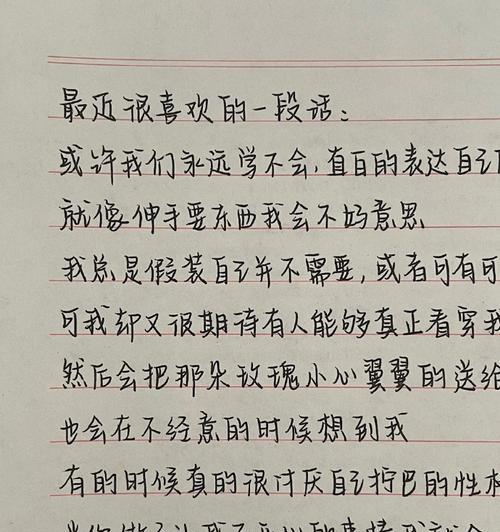 最近很喜欢的一段话:
或许我们永远学不会,直白的表达自己
就像伸手要东西我会不好意思
我总是假装自己并不需要,或者可有可
可我却又很期待有人能够真正看穿我
然后会把那朵玫瑰小心翼翼的送给
也会在不经意的时候想到我
有的时候真的很讨厌自己拧巴的性格